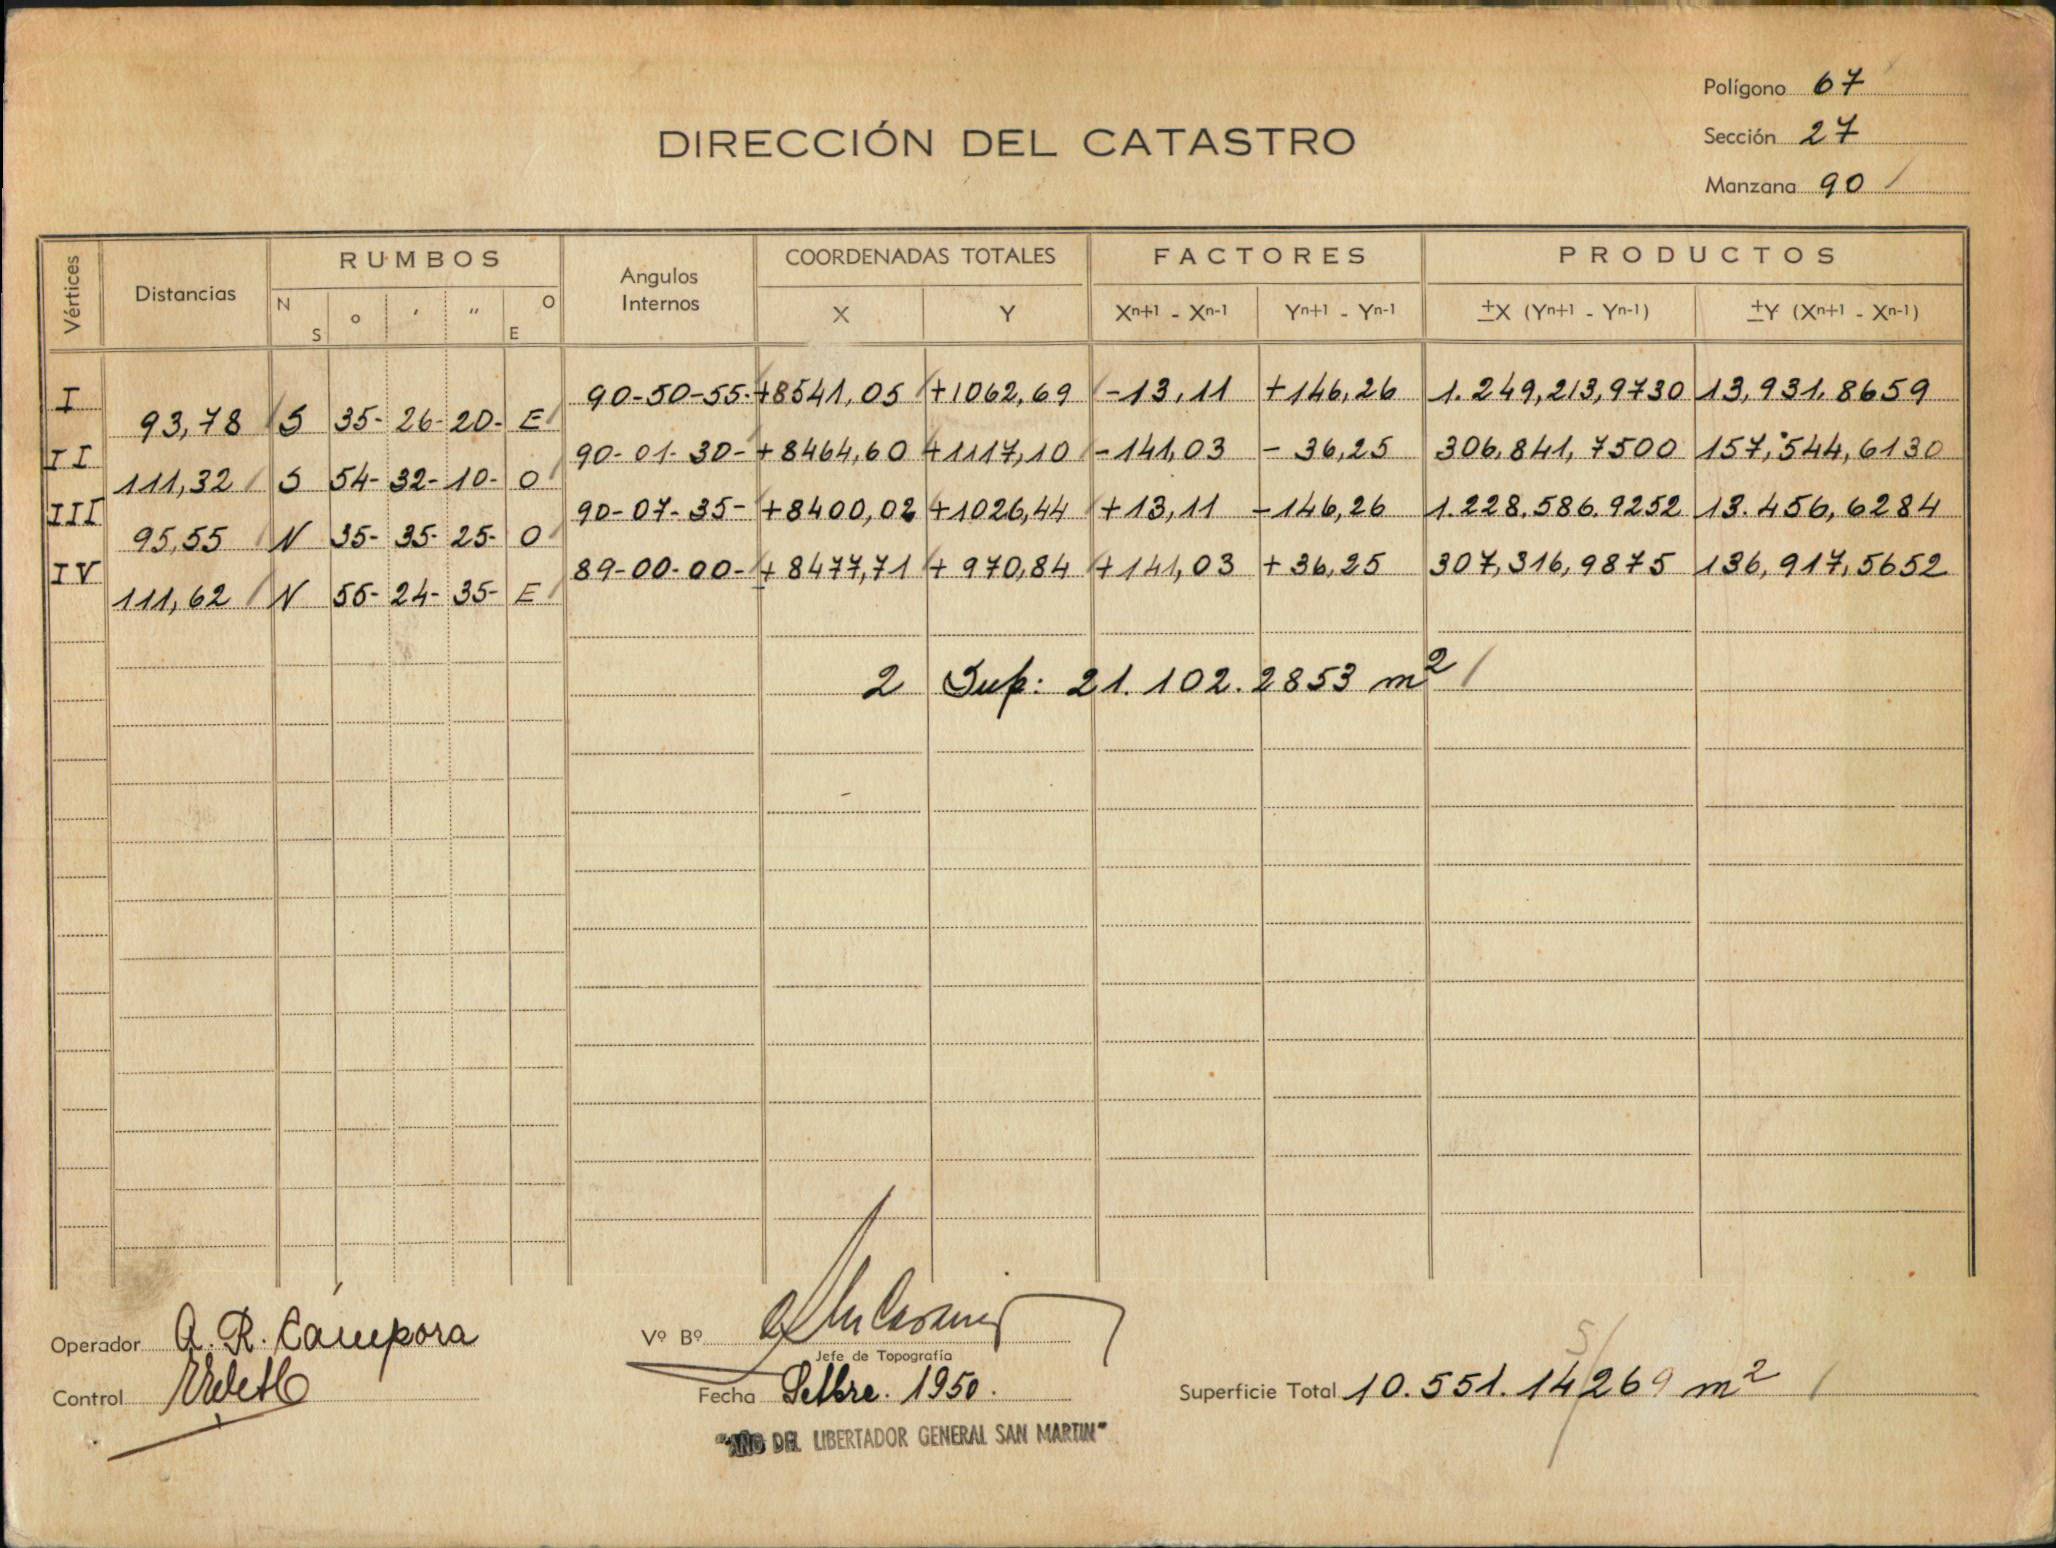 Polígono 67
DIRECCIÓN DEL CATASTRO
Sección 27
Manzana 90 /
Vértices Distancias RUMBOS Angulos Internos COORDENADAS TOTALES FACTORES PRODUCTOS
N S ° ' " O E X Y Xn+1 - Xn-1 Yn+1 - Yn-1 ±X (Yn+1 - Yn-1) ±Y (Xn+1 - Xn-1)
I 90-50-55- +8541,05 +1062,69 -13,11 +146,26 1.249,213,9730 13,931,8659
93,78 S 35- 26- 20- E
II 90-01-30- +8464,60 +1117,10 -141,03 - 36,25 306,841,7500 157,544,6130
111,32 S 54- 32- 10- O
III 90-07-35- +8400,02 +1026,44 +13,11 -146,26 1.228.586.9252 13.456,6284
95,55 N 35- 35- 25- O
IV 89-00-00- +8477,71 + 970,84 +141,03 +36,25 307,316,9875 136,917,5652
111,62 N 55- 24- 35- E
2 Sup: 21.102.2853 m2 /
Operador A. R. Cámpora
Vº Bº
Jefe de Topografía
Control
Fecha Setbre. 1950.
5/
Superficie Total 10.551.14269 m2 /
"AÑO DEL LIBERTADOR GENERAL SAN MARTIN"